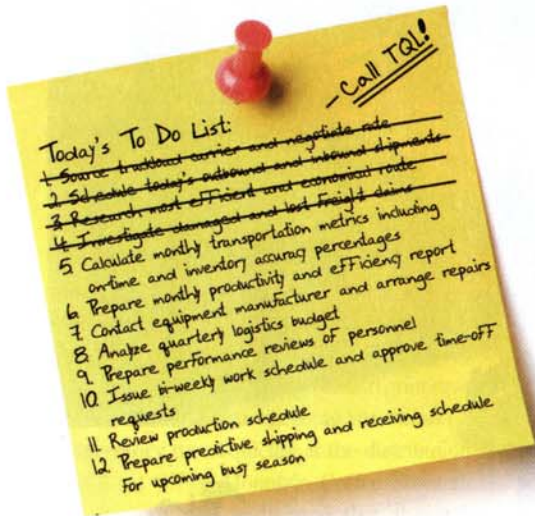 – Call TQL!
Today's To Do List:
1. Source truckload carrier and negotiate rate
2. Schedule today's outbound and inbound shipments
3. Research most efficient and economical route
4. Investigate damaged and lost freight claims
5. Calculate monthly transportation metrics including
on-time and inventory accuracy percentages
6. Prepare monthly productivity and efficiency report
7. Contact equipment manufacturer and arrange repairs
8. Analyze quarterly logistics budget
9. Prepare performance reviews of personnel
10. Issue bi-weekly work schedule and approve time-off
requests
11. Review production schedule
12. Prepare predictive shipping and receiving schedule
for upcoming busy season